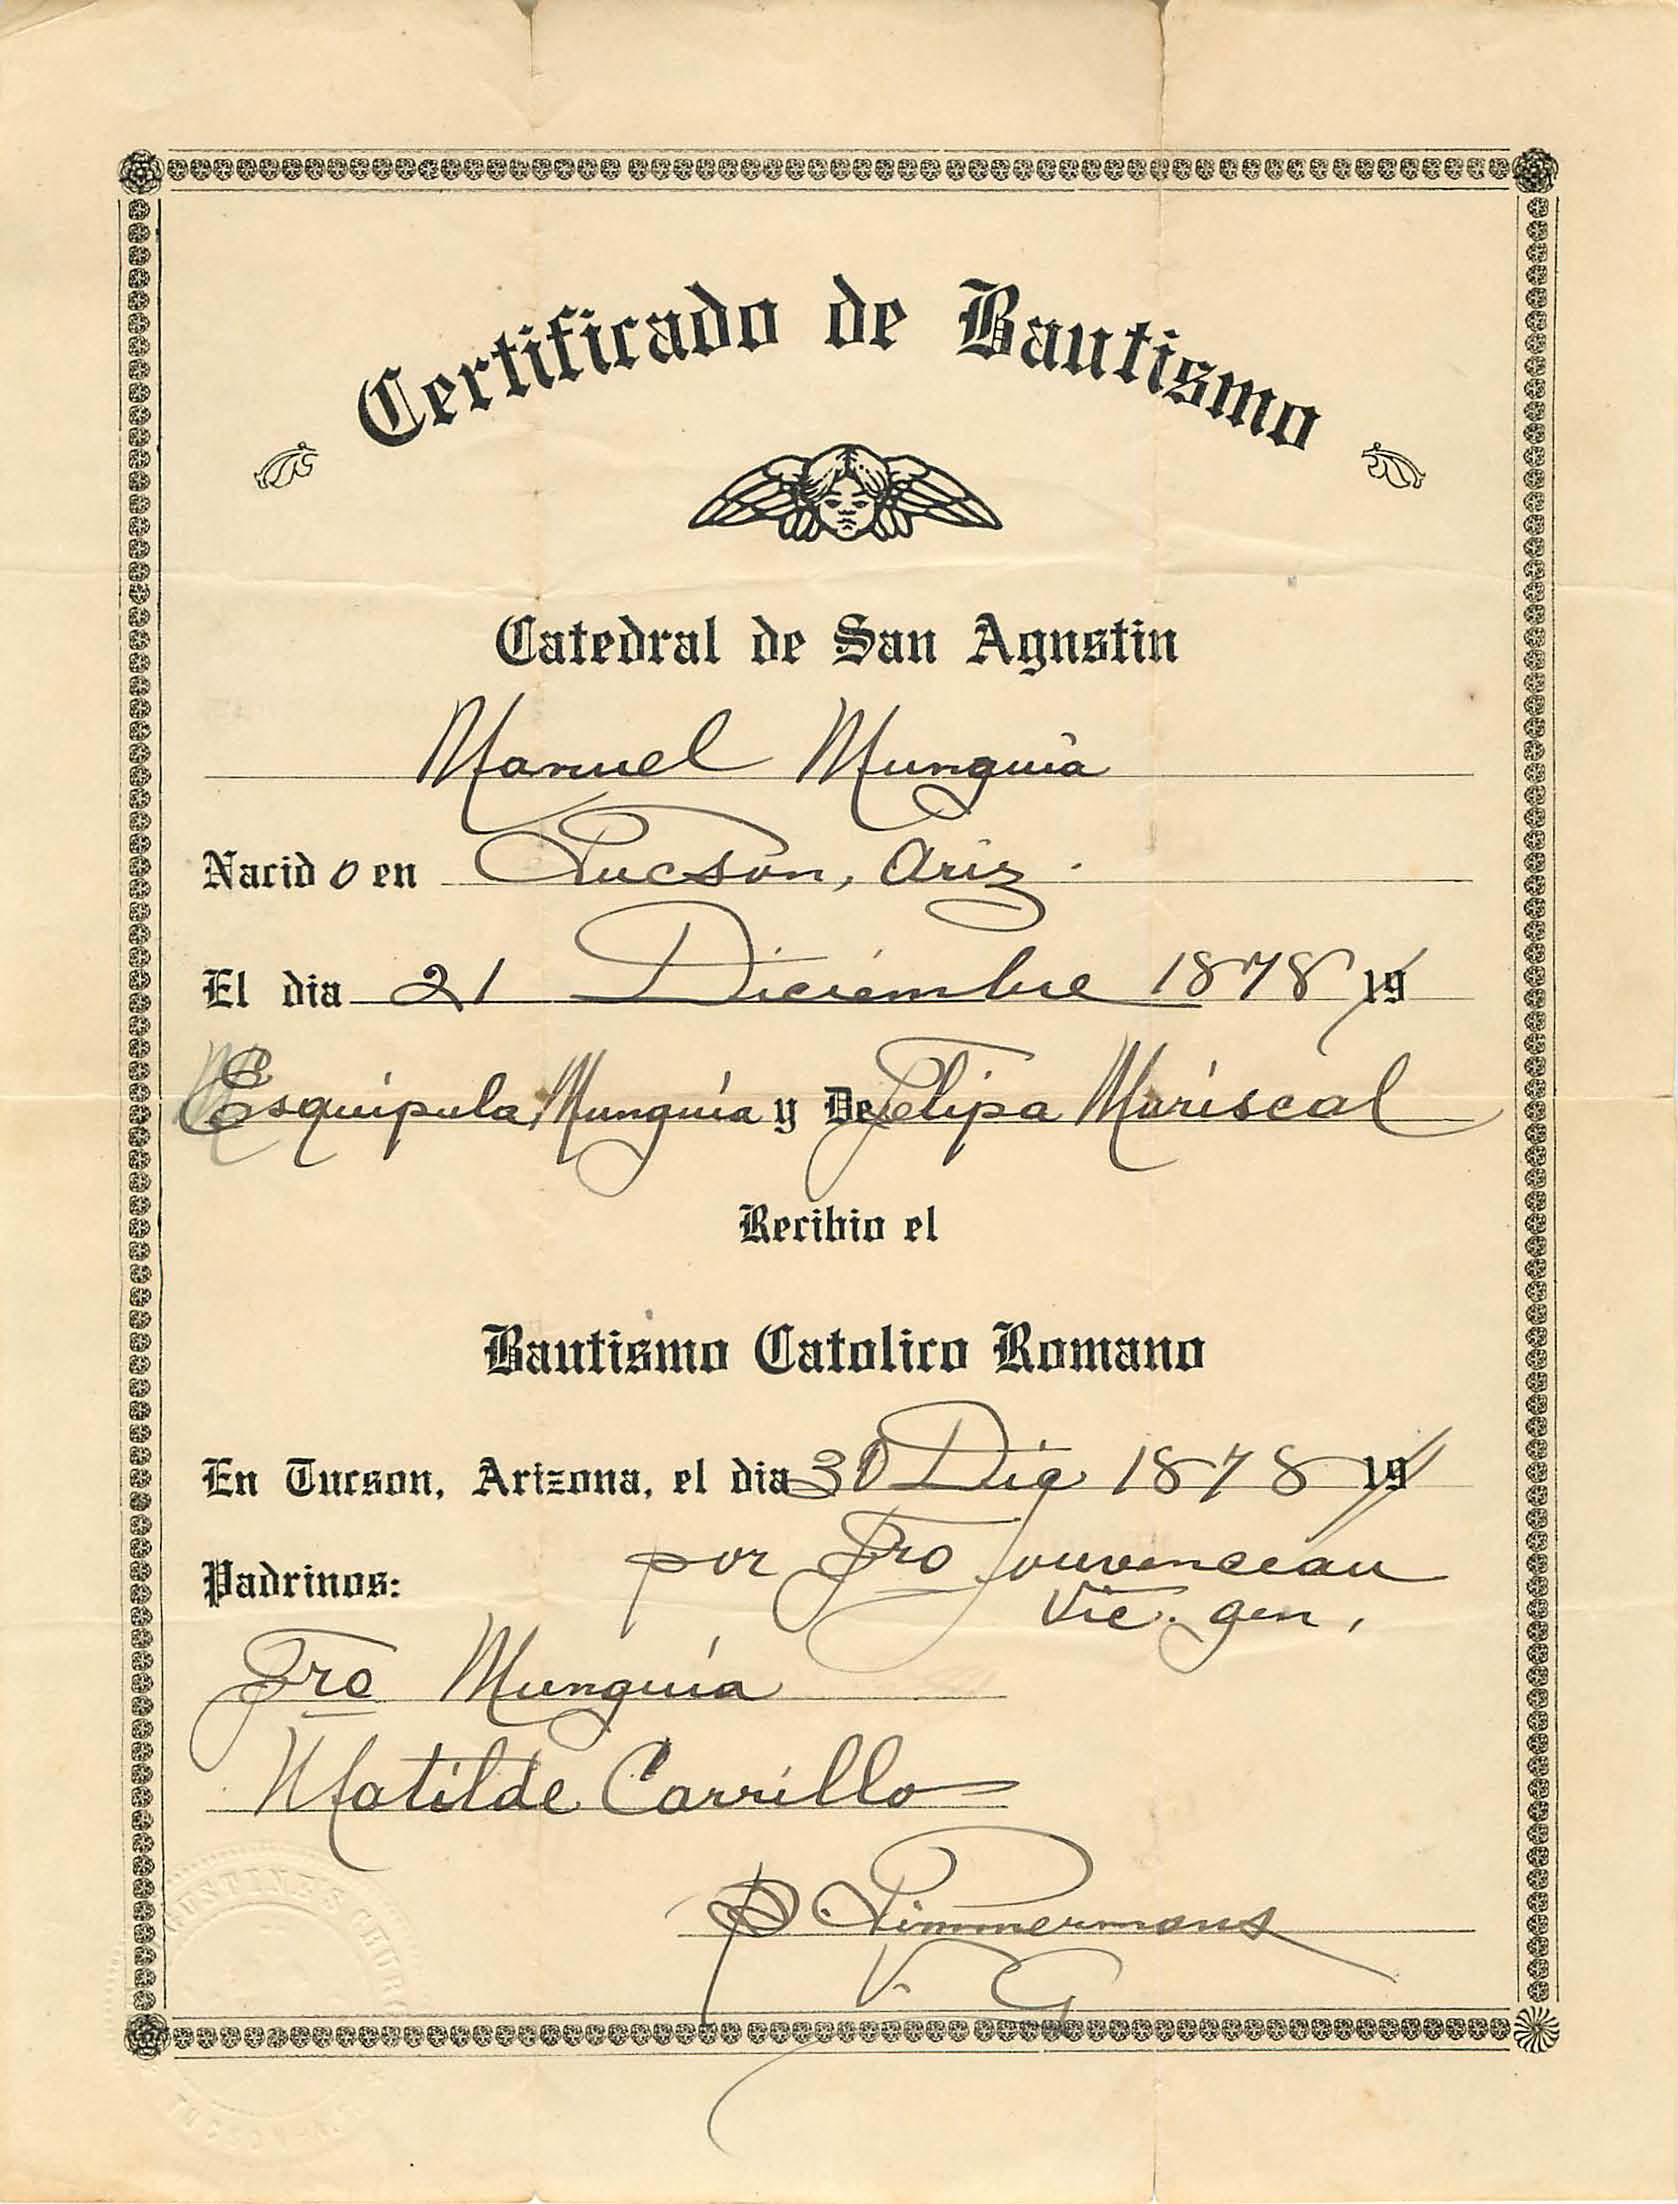 Certificado de Bautismo
Catedral de San Agustin
Manuel Munguia
Nacido en Tucson, Ariz.
El dia 21 Diciembre 1878 19
Esquipula Munguia y De Felipa Mariscal
Recibio el
Bautismo Catolico Romano
En Tucson, Arizona, el dia 30 Dic 1878 19
por Fro Jouvenceau
Padrinos:
Vic. gen,
Fro Munguia
Matilde Carrillo
P. Timmermans
V. G
GUSTINES CHURC
TUCSON A